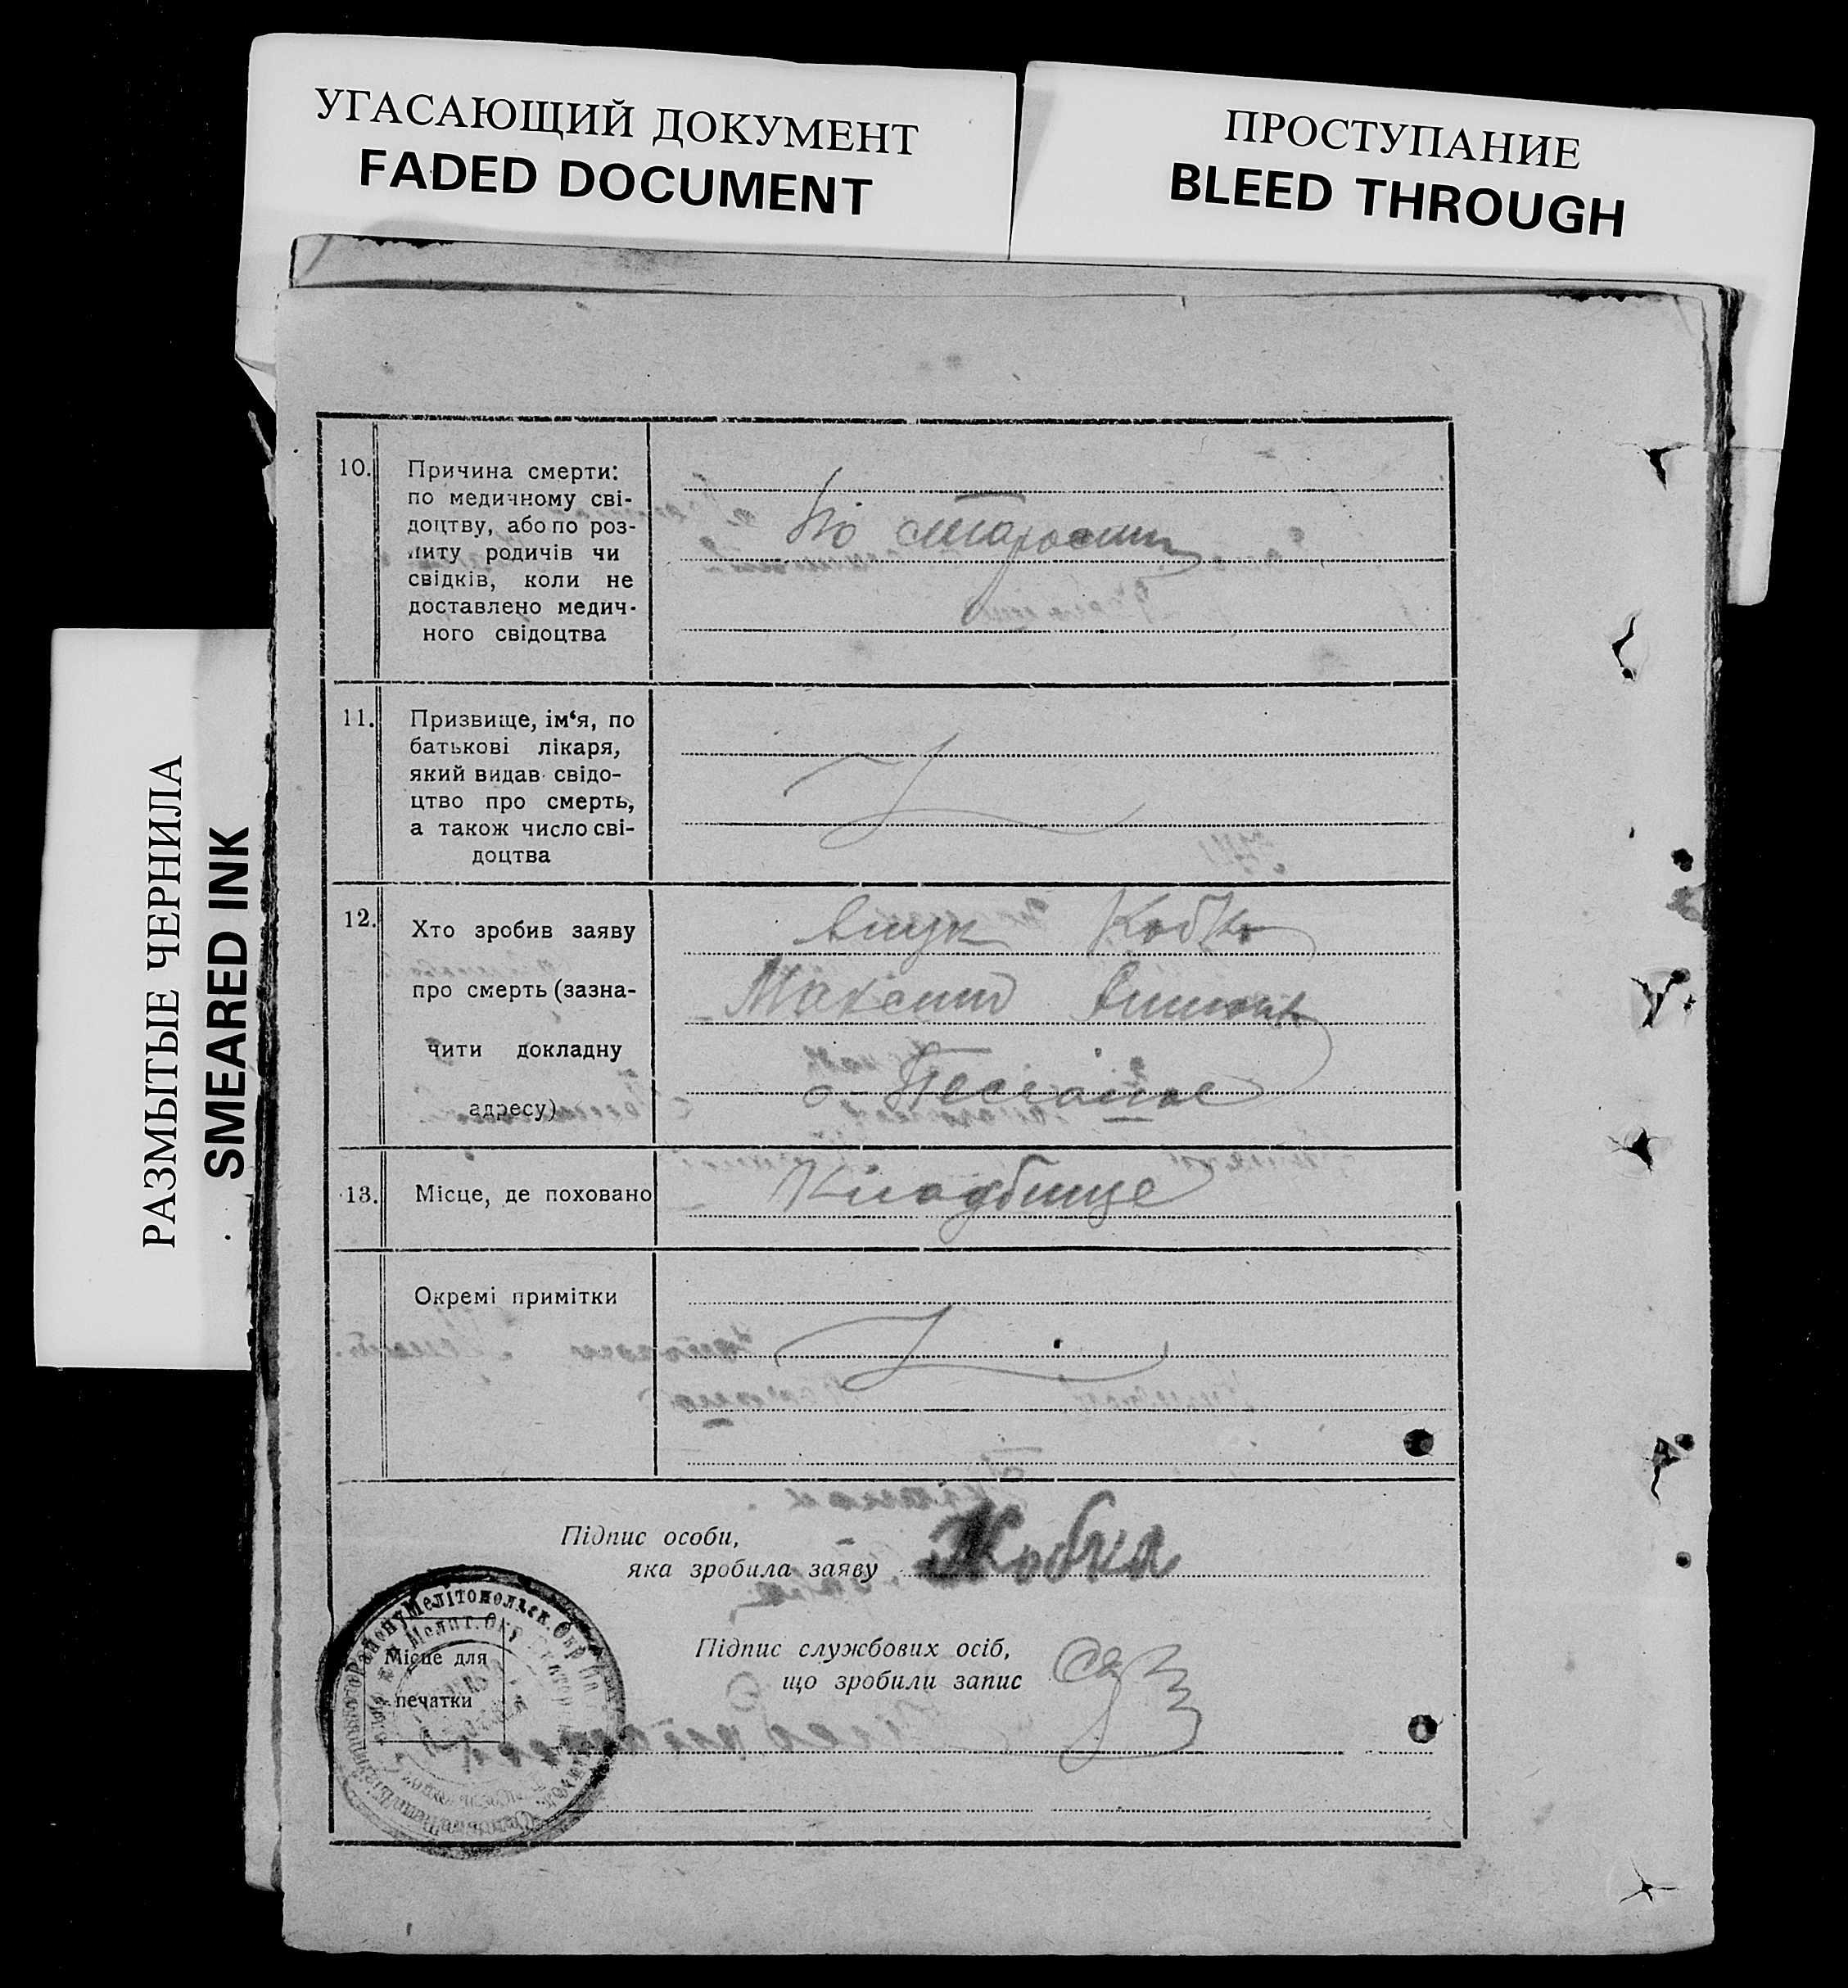 УГАСАЮЩИЙ ДОКУМЕНТ
FADED DOCUMENT
ПРОСТУПАНИЕ
BLEED THROUGH
РАЗМЫТЫЕ ЧЕРНИЛА
SMEARED INK
10.
Причина смерти:
по медичному сві-
доцтву, або по роз-
питу родичів чи
свідків, коли не
доставлено медич-
ного свідоцтва
По старости
11.
Призвище, ім‘я, по
батькові лікаря,
який видав свідо-
цтво про смерть,
а також число сві-
доцтва
12.
Хто зробив заяву
про смерть (зазна-
чити докладну
адресу)
Внук Кобко
Максим
13.
Місце, де поховано
Кладбище
Окремі примітки
Підпис особи,
яка зробила заяву Кобка
Підпис службових осіб,
що зробили запис
Місце для
печатки
Району Мелітопольск. Окр.